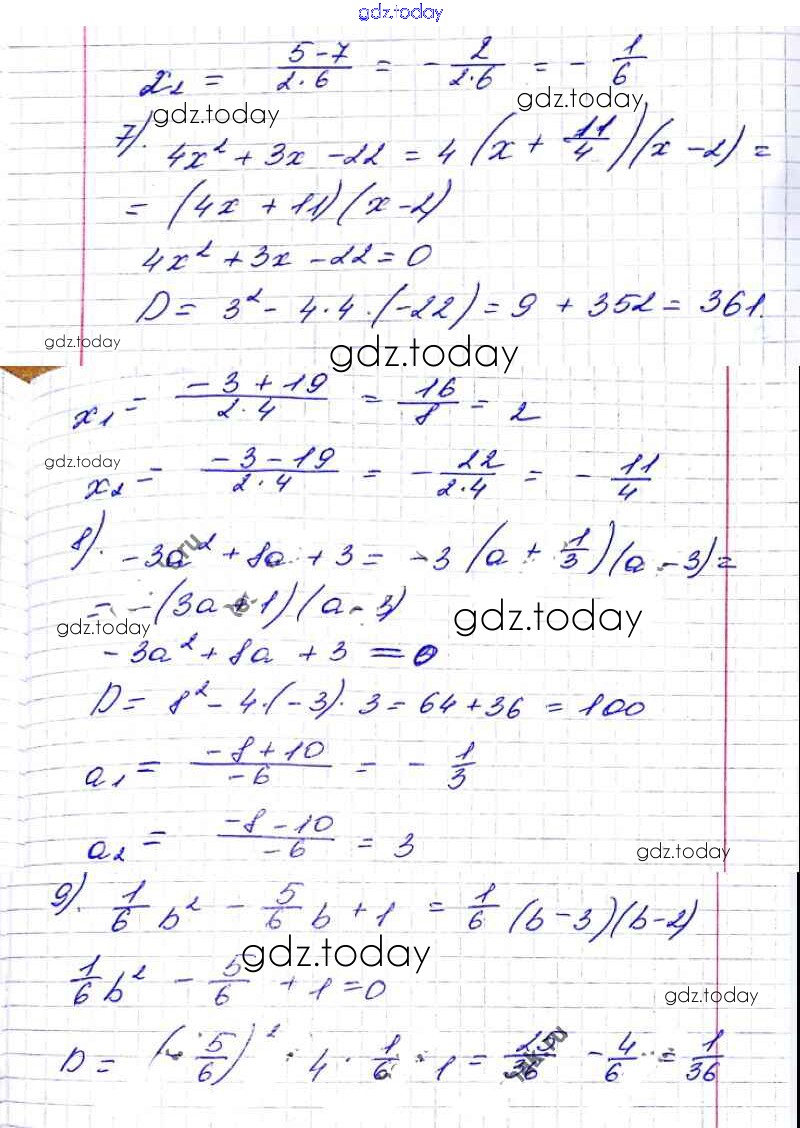 gdz.today
x₂ = (5-7)/(2·6) = - 2/(2·6) = - 1/6
gdz.today gdz.today
7). 4x² + 3x - 22 = 4 (x + 11/4)(x - 2) =
= (4x + 11)(x - 2)
4x² + 3x - 22 = 0
D = 3² - 4·4·(-22) = 9 + 352 = 361.
gdz.today gdz.today
x₁ = (-3 + 19)/(2·4) = 16/8 = 2
gdz.today
x₂ = (-3 - 19)/(2·4) = - 22/(2·4) = - 11/4
8). -3a² + 8a + 3 = -3 (a + 1/3)(a - 3) =
= -(3a + 1)(a - 3)
gdz.today gdz.today
-3a² + 8a + 3 = 0
D = 8² - 4·(-3)·3 = 64 + 36 = 100
a₁ = (-8 + 10)/-6 = - 1/3
a₂ = (-8 - 10)/-6 = 3
gdz.today
9). 1/6 b² - 5/6 b + 1 = 1/6 (b - 3)(b - 2)
gdz.today
1/6 b² - 5/6 + 1 = 0
gdz.today
D = (- 5/6)² - 4 · 1/6 · 1 = 25/36 - 4/6 = 1/36